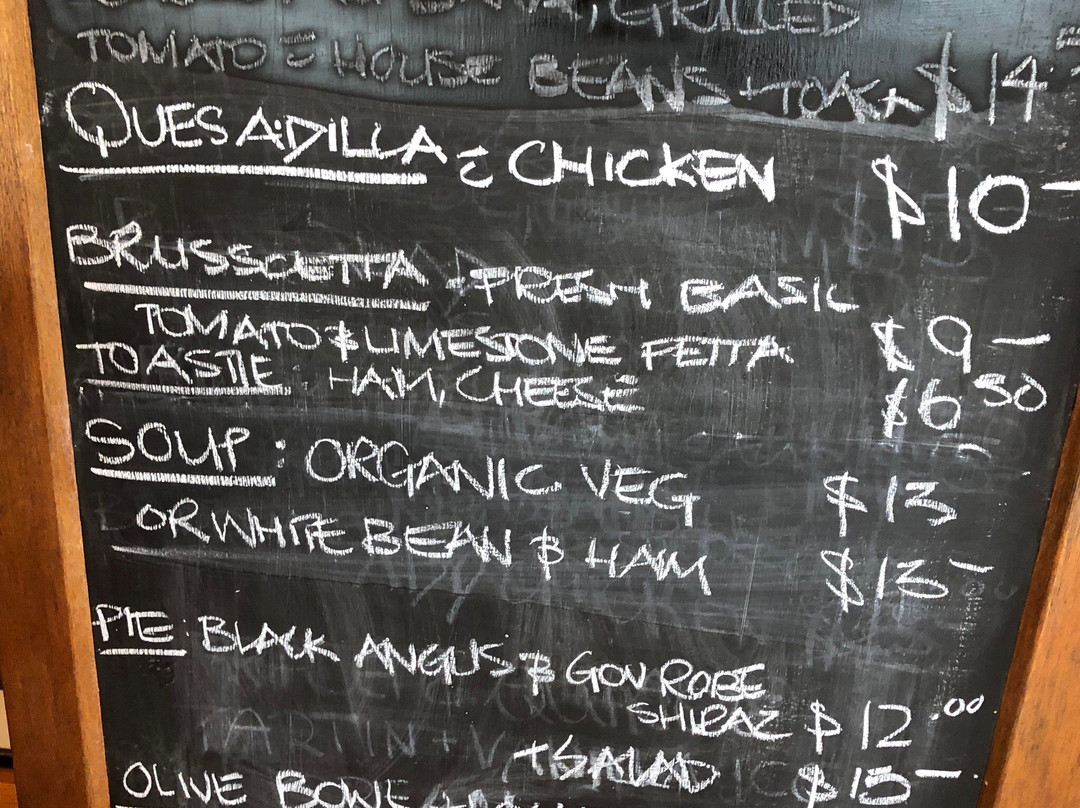 GRILLED
TOMATO C HOUSE BEANS + TOAST $14
QUESADILLA C CHICKEN $10-
BRUSSCETTA - FRESH BASIC
TOMATO & LIMESTONE FETTA $9-
TOASTIE : HAM, CHEESE $6.50
SOUP : ORGANIC VEG $13
OR WHITE BEAN & HAM $13-
PIE : BLACK ANGUS & GOV ROBE
SHIRAZ $12.00
+ SALAD $15-
OLIVE